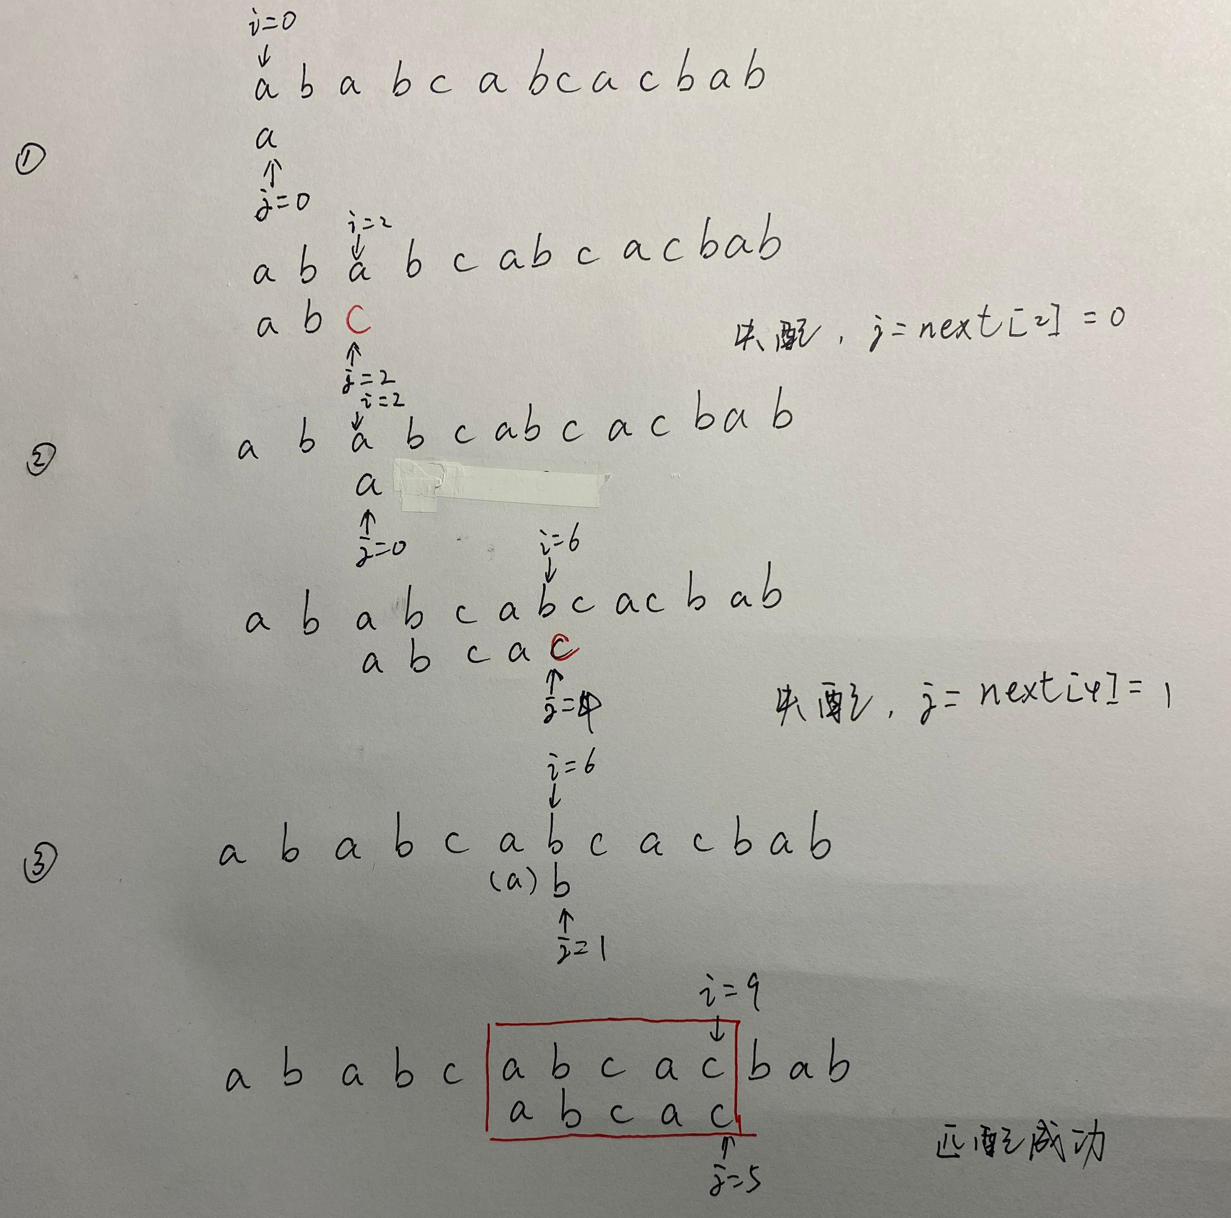 i=0
↓
a b a b c a b c a c b a b
a
①
↑
j=0
i=2
↓
a b a b c a b c a c b a b
a b c
失配，j=next[2]=0
↑
j=2
i=2
↓
a b a b c a b c a c b a b
②
a
↑
j=0
i=6
↓
a b a b c a b c a c b a b
a b c a c
↑
j=4
失配，j=next[4]=1
i=6
↓
a b a b c a b c a c b a b
③
(a) b
↑
j=1
i=9
↓
a b a b c a b c a c b a b
a b c a c
匹配成功
↑
j=5